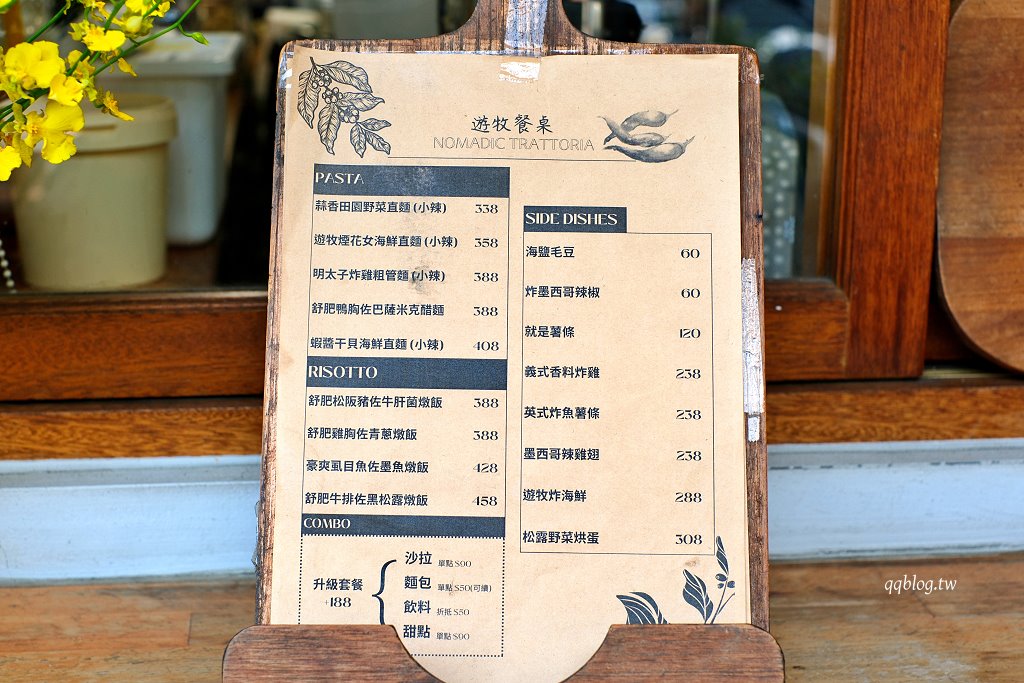 遊牧餐桌
NOMADIC TRATTORIA
PASTA
蒜香田園野菜直麵 (小辣) 338
遊牧煙花女海鮮直麵 (小辣) 358
明太子炸雞粗管麵 (小辣) 388
舒肥鴨胸佐巴薩米克醋麵 388
蝦醬干貝海鮮直麵 (小辣) 408
RISOTTO
舒肥松阪豬佐牛肝菌燉飯 388
舒肥雞胸佐青蔥燉飯 388
豪爽虱目魚佐墨魚燉飯 428
舒肥牛排佐黑松露燉飯 458
COMBO
升級套餐
+188
沙拉 單點 $90
麵包 單點 $50(可續)
飲料 折抵 $50
甜點 單點 $90
SIDE DISHES
海鹽毛豆 60
炸墨西哥辣椒 60
就是薯條 120
義式香料炸雞 238
英式炸魚薯條 238
墨西哥辣雞翅 238
遊牧炸海鮮 288
松露野菜烘蛋 308
qqblog.tw